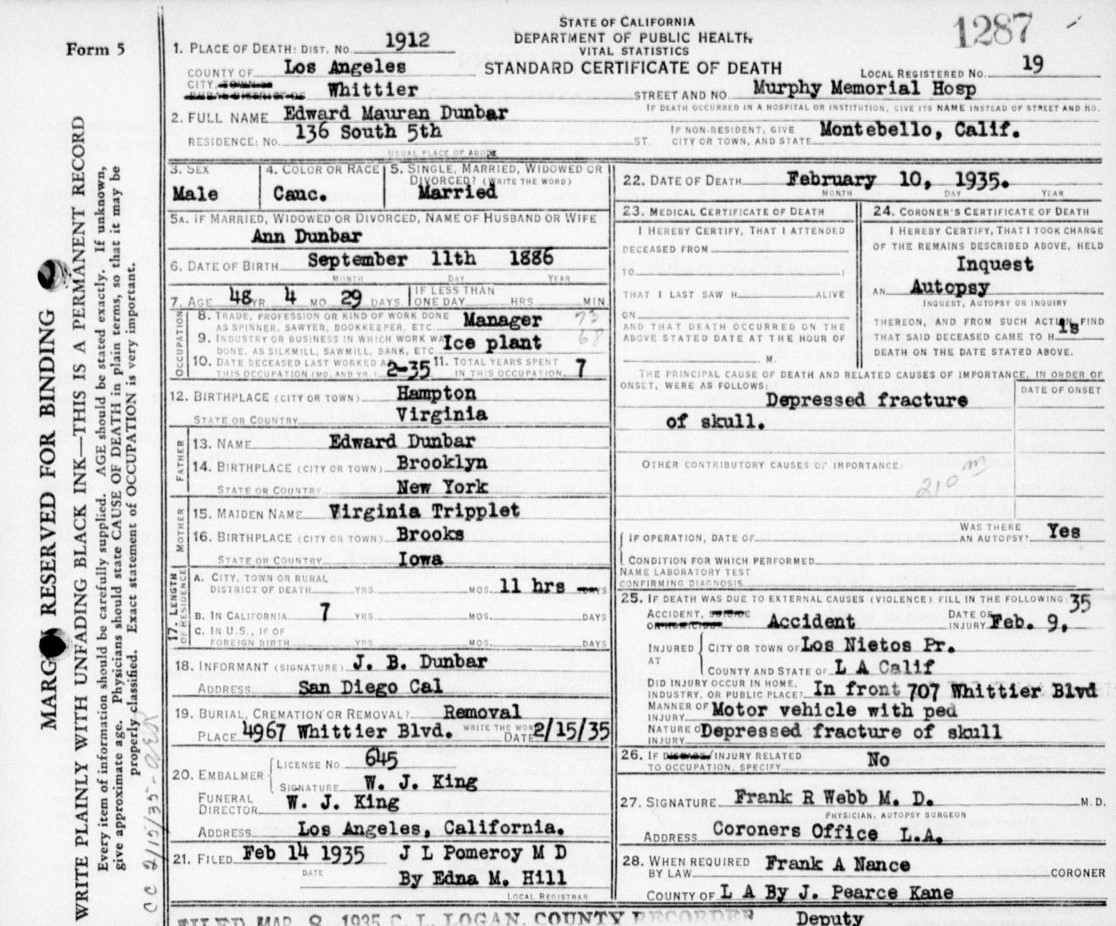 1287
STATE OF CALIFORNIA
DEPARTMENT OF PUBLIC HEALTH
VITAL STATISTICS
STANDARD CERTIFICATE OF DEATH
Form 5
1. PLACE OF DEATH: DIST. NO. 1912
LOCAL REGISTERED NO. 19
COUNTY OF Los Angeles
CITY, TOWN OR RURAL DISTRICT OF Whittier
STREET AND NO. Murphy Memorial Hosp
IF DEATH OCCURRED IN A HOSPITAL OR INSTITUTION, GIVE ITS NAME INSTEAD OF STREET AND NO.
2. FULL NAME Edward Mauran Dunbar
RESIDENCE: NO. 136 South 5th ST.
IF NON-RESIDENT, GIVE CITY OR TOWN, AND STATE Montebello, Calif.
USUAL PLACE OF ABODE
3. SEX Male
4. COLOR OR RACE Cauc.
5. SINGLE, MARRIED, WIDOWED OR DIVORCED? (WRITE THE WORD) Married
5A. IF MARRIED, WIDOWED OR DIVORCED, NAME OF HUSBAND OR WIFE
Ann Dunbar
6. DATE OF BIRTH September 11th 1886
MONTH DAY YEAR
7. AGE 48 YR. 4 MO. 29 DAYS. IF LESS THAN ONE DAY HRS. MIN.
OCCUPATION
8. TRADE, PROFESSION OR KIND OF WORK DONE AS SPINNER, SAWYER, BOOKKEEPER, ETC. Manager 73
9. INDUSTRY OR BUSINESS IN WHICH WORK WAS DONE, AS SILKMILL, SAWMILL, BANK, ETC. Ice plant 68
10. DATE DECEASED LAST WORKED AT THIS OCCUPATION (MO. AND YR.) 2-35
11. TOTAL YEARS SPENT IN THIS OCCUPATION 7
12. BIRTHPLACE (CITY OR TOWN) Hampton
STATE OR COUNTRY Virginia
FATHER
13. NAME Edward Dunbar
14. BIRTHPLACE (CITY OR TOWN) Brooklyn
STATE OR COUNTRY New York
MOTHER
15. MAIDEN NAME Virginia Tripplet
16. BIRTHPLACE (CITY OR TOWN) Brooks
STATE OR COUNTRY Iowa
17. LENGTH OF RESIDENCE
A. CITY, TOWN OR RURAL DISTRICT OF DEATH YRS. MOS. 11 hrs DAYS
B. IN CALIFORNIA 7 YRS. MOS. DAYS
C. IN U.S., IF OF FOREIGN BIRTH YRS. MOS. DAYS
18. INFORMANT (SIGNATURE) J. B. Dunbar
ADDRESS San Diego Cal
19. BURIAL, CREMATION OR REMOVAL? Removal
WRITE THE WORD
PLACE 4967 Whittier Blvd. DATE 2/15/35
20. EMBALMER LICENSE NO. 645
SIGNATURE W. J. King
FUNERAL DIRECTOR W. J. King
ADDRESS Los Angeles, California.
21. FILED Feb 14 1935 J L Pomeroy M D
DATE
By Edna M. Hill
LOCAL REGISTRAR
22. DATE OF DEATH February 10, 1935.
MONTH DAY YEAR
23. MEDICAL CERTIFICATE OF DEATH
I HEREBY CERTIFY, THAT I ATTENDED
DECEASED FROM
TO ;
THAT I LAST SAW H ALIVE
ON
AND THAT DEATH OCCURRED ON THE
ABOVE STATED DATE AT THE HOUR OF
M.
24. CORONER'S CERTIFICATE OF DEATH
I HEREBY CERTIFY, THAT I TOOK CHARGE
OF THE REMAINS DESCRIBED ABOVE, HELD
Inquest
AN Autopsy
INQUEST, AUTOPSY OR INQUIRY
THEREON, AND FROM SUCH ACTION, FIND
THAT SAID DECEASED CAME TO H is
DEATH ON THE DATE STATED ABOVE.
THE PRINCIPAL CAUSE OF DEATH AND RELATED CAUSES OF IMPORTANCE, IN ORDER OF
ONSET, WERE AS FOLLOWS:
DATE OF ONSET
Depressed fracture
of skull.
OTHER CONTRIBUTORY CAUSES OF IMPORTANCE:
210 m
WAS THERE AN AUTOPSY? Yes
IF OPERATION, DATE OF
CONDITION FOR WHICH PERFORMED
NAME LABORATORY TEST
CONFIRMING DIAGNOSIS
25. IF DEATH WAS DUE TO EXTERNAL CAUSES (VIOLENCE) FILL IN THE FOLLOWING:
ACCIDENT, SUICIDE OR HOMICIDE? Accident DATE OF INJURY Feb. 9, 35
INJURED AT CITY OR TOWN OF Los Nietos Pr.
COUNTY AND STATE OF L A Calif
DID INJURY OCCUR IN HOME, INDUSTRY, OR PUBLIC PLACE? In front 707 Whittier Blvd
MANNER OF INJURY Motor vehicle with ped
NATURE OF INJURY Depressed fracture of skull
26. IF DISEASE/INJURY RELATED TO OCCUPATION, SPECIFY No
27. SIGNATURE Frank R Webb M. D. M.D.
PHYSICIAN, AUTOPSY SURGEON
ADDRESS Coroners Office L.A.
28. WHEN REQUIRED BY LAW Frank A Nance CORONER
COUNTY OF L A By J. Pearce Kane
Deputy
FILED MAR 8 1935 C. L. LOGAN, COUNTY RECORDER
MARGIN RESERVED FOR BINDING
WRITE PLAINLY WITH UNFADING BLACK INK—THIS IS A PERMANENT RECORD
Every item of information should be carefully supplied. AGE should be stated exactly. If unknown,
give approximate age. Physicians should state CAUSE OF DEATH in plain terms, so that it may be
properly classified. Exact statement of OCCUPATION is very important.
CC 2/15/35